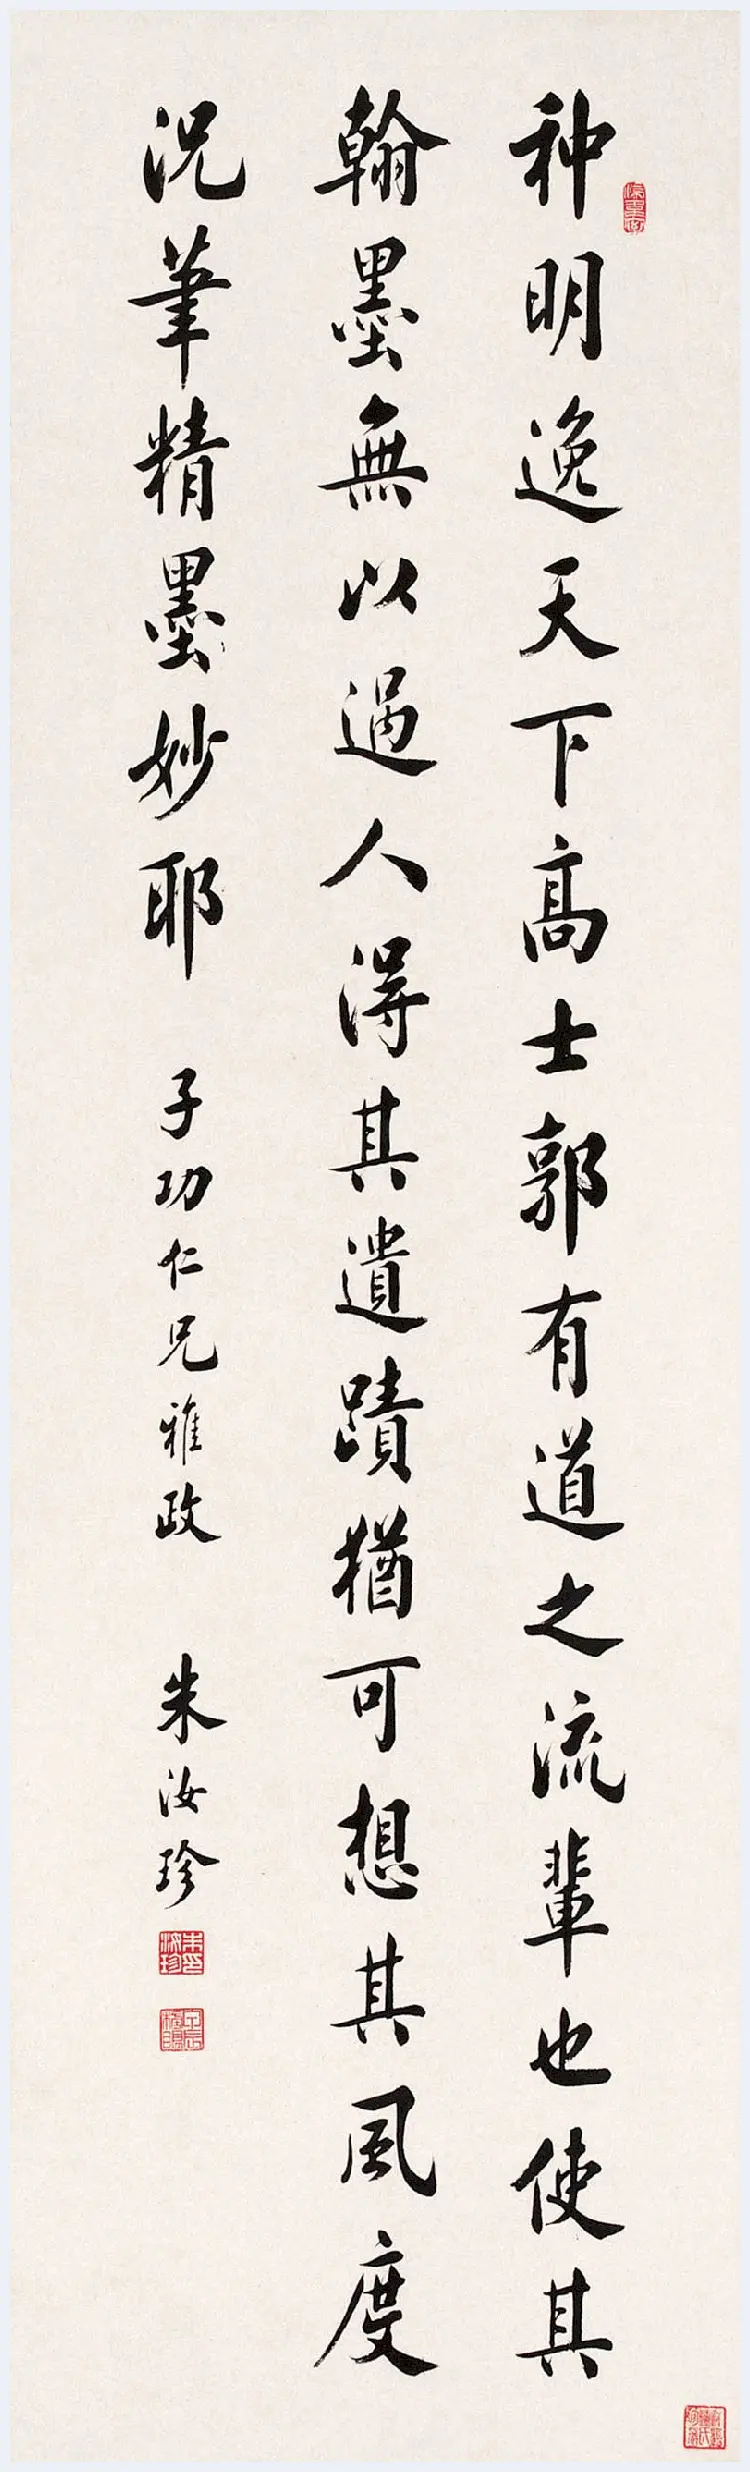 种明逸天下高士郭有道之流輩也使其
翰墨無以過人得其遺蹟猶可想其風度
況筆精墨妙耶 子功仁兄雅政 朱汝珍
朱汝珍印